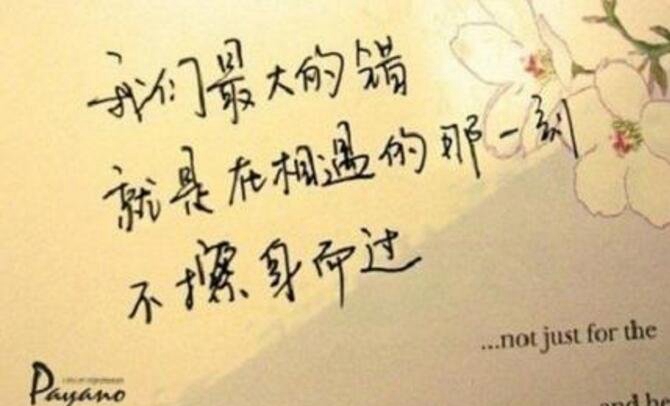 我们最大的错
就是在相遇的那一刻
不擦身而过
...not just for the
and he
Payano